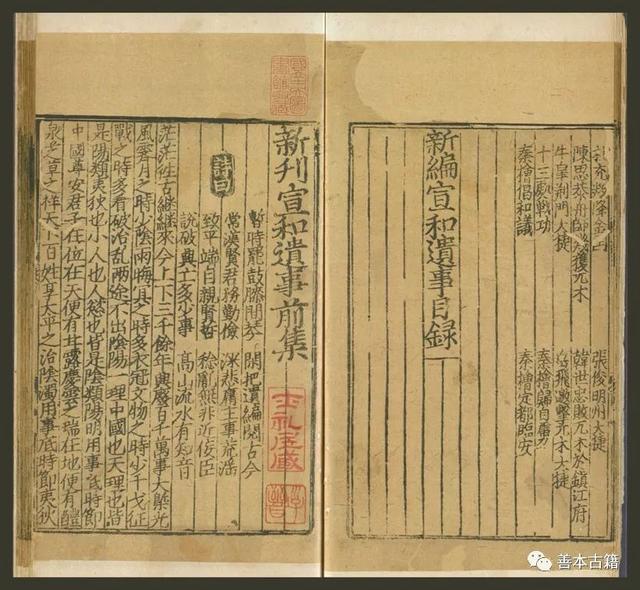 張俊明州大捷
陳思恭舟師 獲兀木 韓世忠敗兀木於鎮江府
牛皋荆門大捷 岳飛邀擊兀木大捷
十三 戰功 秦檜歸自
秦檜倡和議 秦檜定都臨安
新編宣和遺事目録
新刊宣和遺事前集
詩曰
暫時罷鼓膝間琴 閑把遺編閱古今
常漢賢君務勤儉 深悲庸主事荒淫
致平端自親賢哲 稔亂無非近佞臣
說破興亡多少事 高山流水有知音
茫茫往古継継來今上下三千餘年興廢百千萬事大槩光
風霽月之時少陰雨晦冥之時多衣冠文物之時少干戈征
戰之時多看破治乱兩途不出陰陽一理中國也天理也皆
是陽類夷狄也小人也人慾也皆是陰類陽明用事底時節
中國尊安君子在位在天便有甘露慶雲之瑞在地便有醴
泉芝草之祥天下百姓享太平之治陰濁用事底時節夷狄
士礼居藏
善本古籍